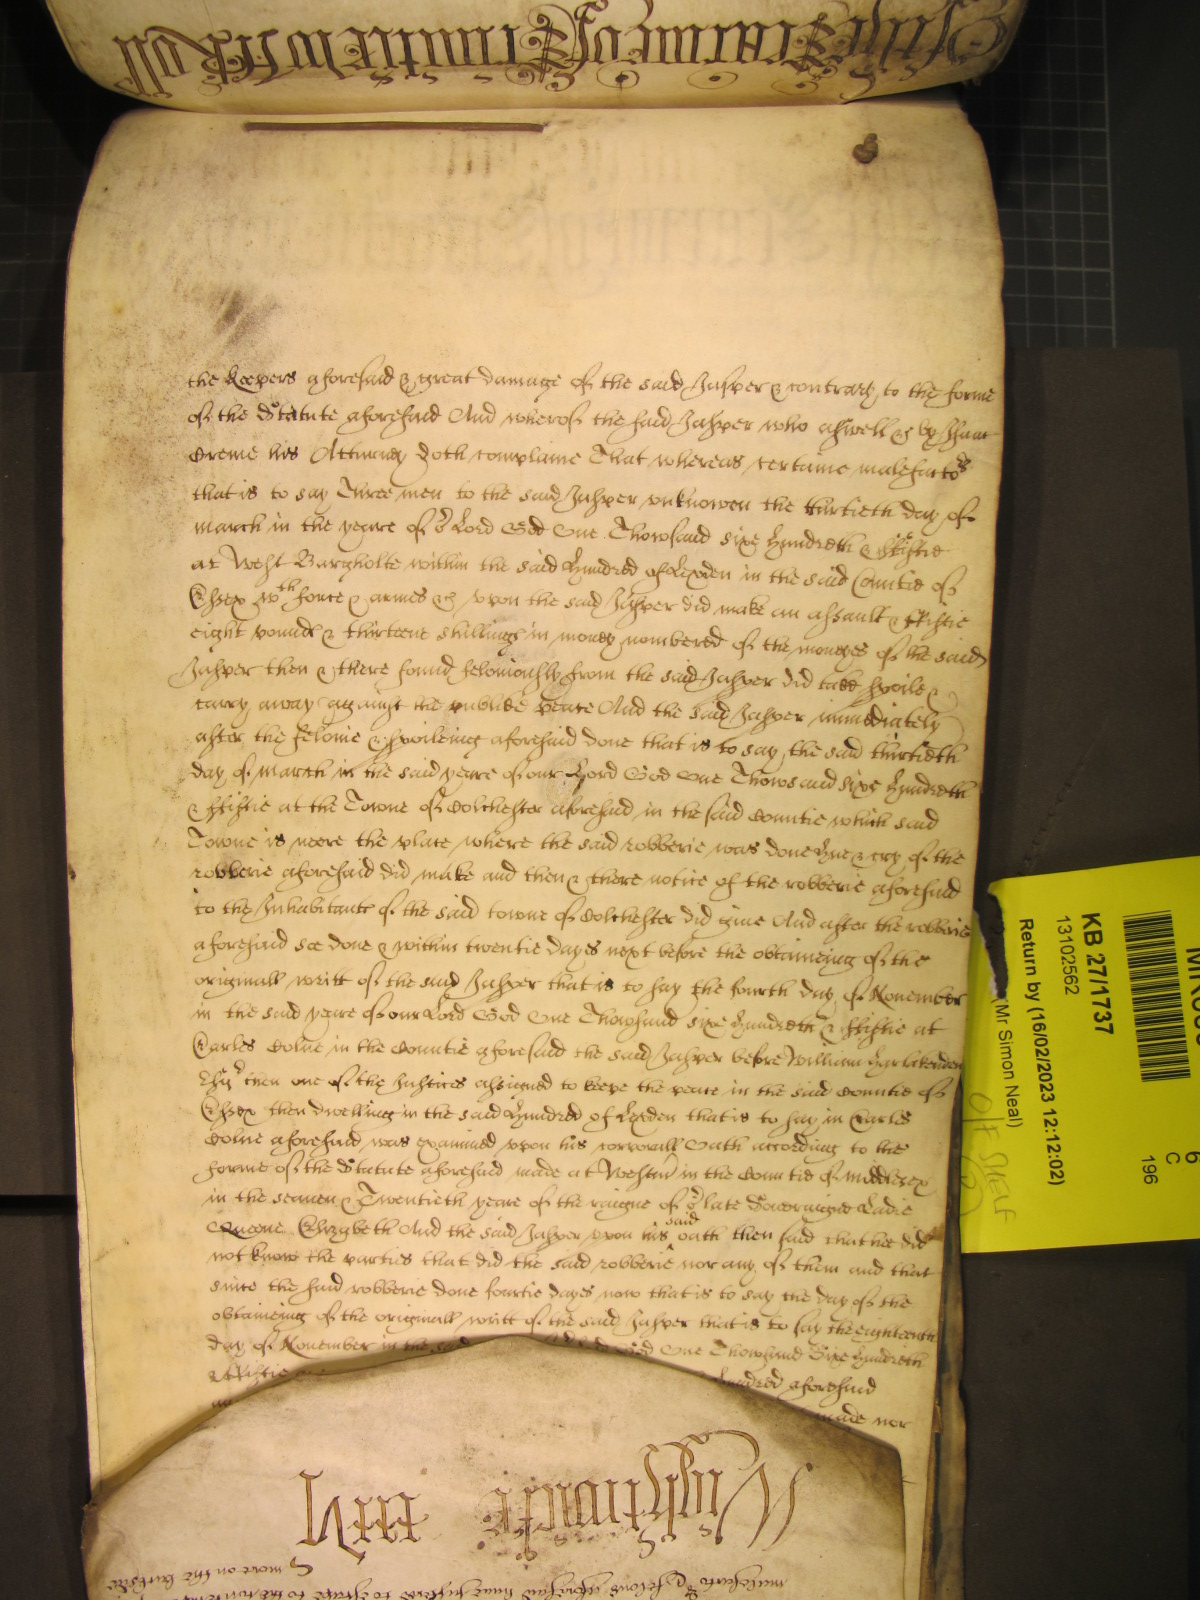 Of the Tearme of
the keepers aforesaid & great damage of the said Jasper & contrary to the forme
of the Statute aforesaid And whereof the said Jasper who aswell &c by
Creme his Atturney doth complaine That whereas certaine malefactors
that is to say Three men to the said Jasper unknowen the thirtieth day of
March in the yeare of or Lord God One Thowsand sixe hundreth & Fiftie
at West Bargholte within the said hundred of Lexden in the said Countie of
Essex wth force & armes &c upon the said Jasper did make an assault & Fiftie
eight pounds & thirteene shillings in money nombered of the moneyes of the said
Jasper then & there found feloniously from the said Jasper did take spoile &
carry away against the publike peace And the said Jasper immediately
after the felonie & spoileing aforesaid done that is to say the said thirtieth
day of March in the said yeare of our Lord God One Thowsand sixe hundreth
& Fiftie at the Towne of Colchester aforesaid in the said Countie which said
Towne is neere the place where the said robberie was done hue & cry of the
robberie aforesaid did make and then & there notice of the robberie aforesaid
to the Inhabitants of the said towne of Colchester did give And after the robberie
aforesaid soe done & within twentie dayes next before the obtaineing of the
originall writt of the said Jasper that is to say the fourth day of November
in the said yeare of our Lord God One Thowsand sixe hundreth & Fiftie at
Earles Colne in the Countie aforesaid the said Jasper before William Harlakenden
then one of the Justices assigned to keepe the peace in the said Countie of
Essex then dwelling in the said hundred of Lexden that is to say in Earles
Colne aforesaid was examined upon his corporall Oath according to the
forme of the Statute aforesaid made at Westmr in the Countie of Middlesex
in the seaven & Twentieth yeare of the raigne of or late Soveraigne Ladie
Queene Elizabeth And the said Jasper upon his said oath then said that hee did
not know the parties that did the said robberie nor any of them and that
since the said robberie done fourtie dayes now that is to say the day of the
obtaineing of the originall writt of the said Jasper that is to say the eighteenth
day of November in the said God One Thowsand Sixe hundreth
& Fiftie hundred aforesaid
made nor
more on the backside
KB 27/1737
13102562
Return by (16/02/2023 12:12:02)
(Mr Simon Neal)
O/F SHELF
6
C
196